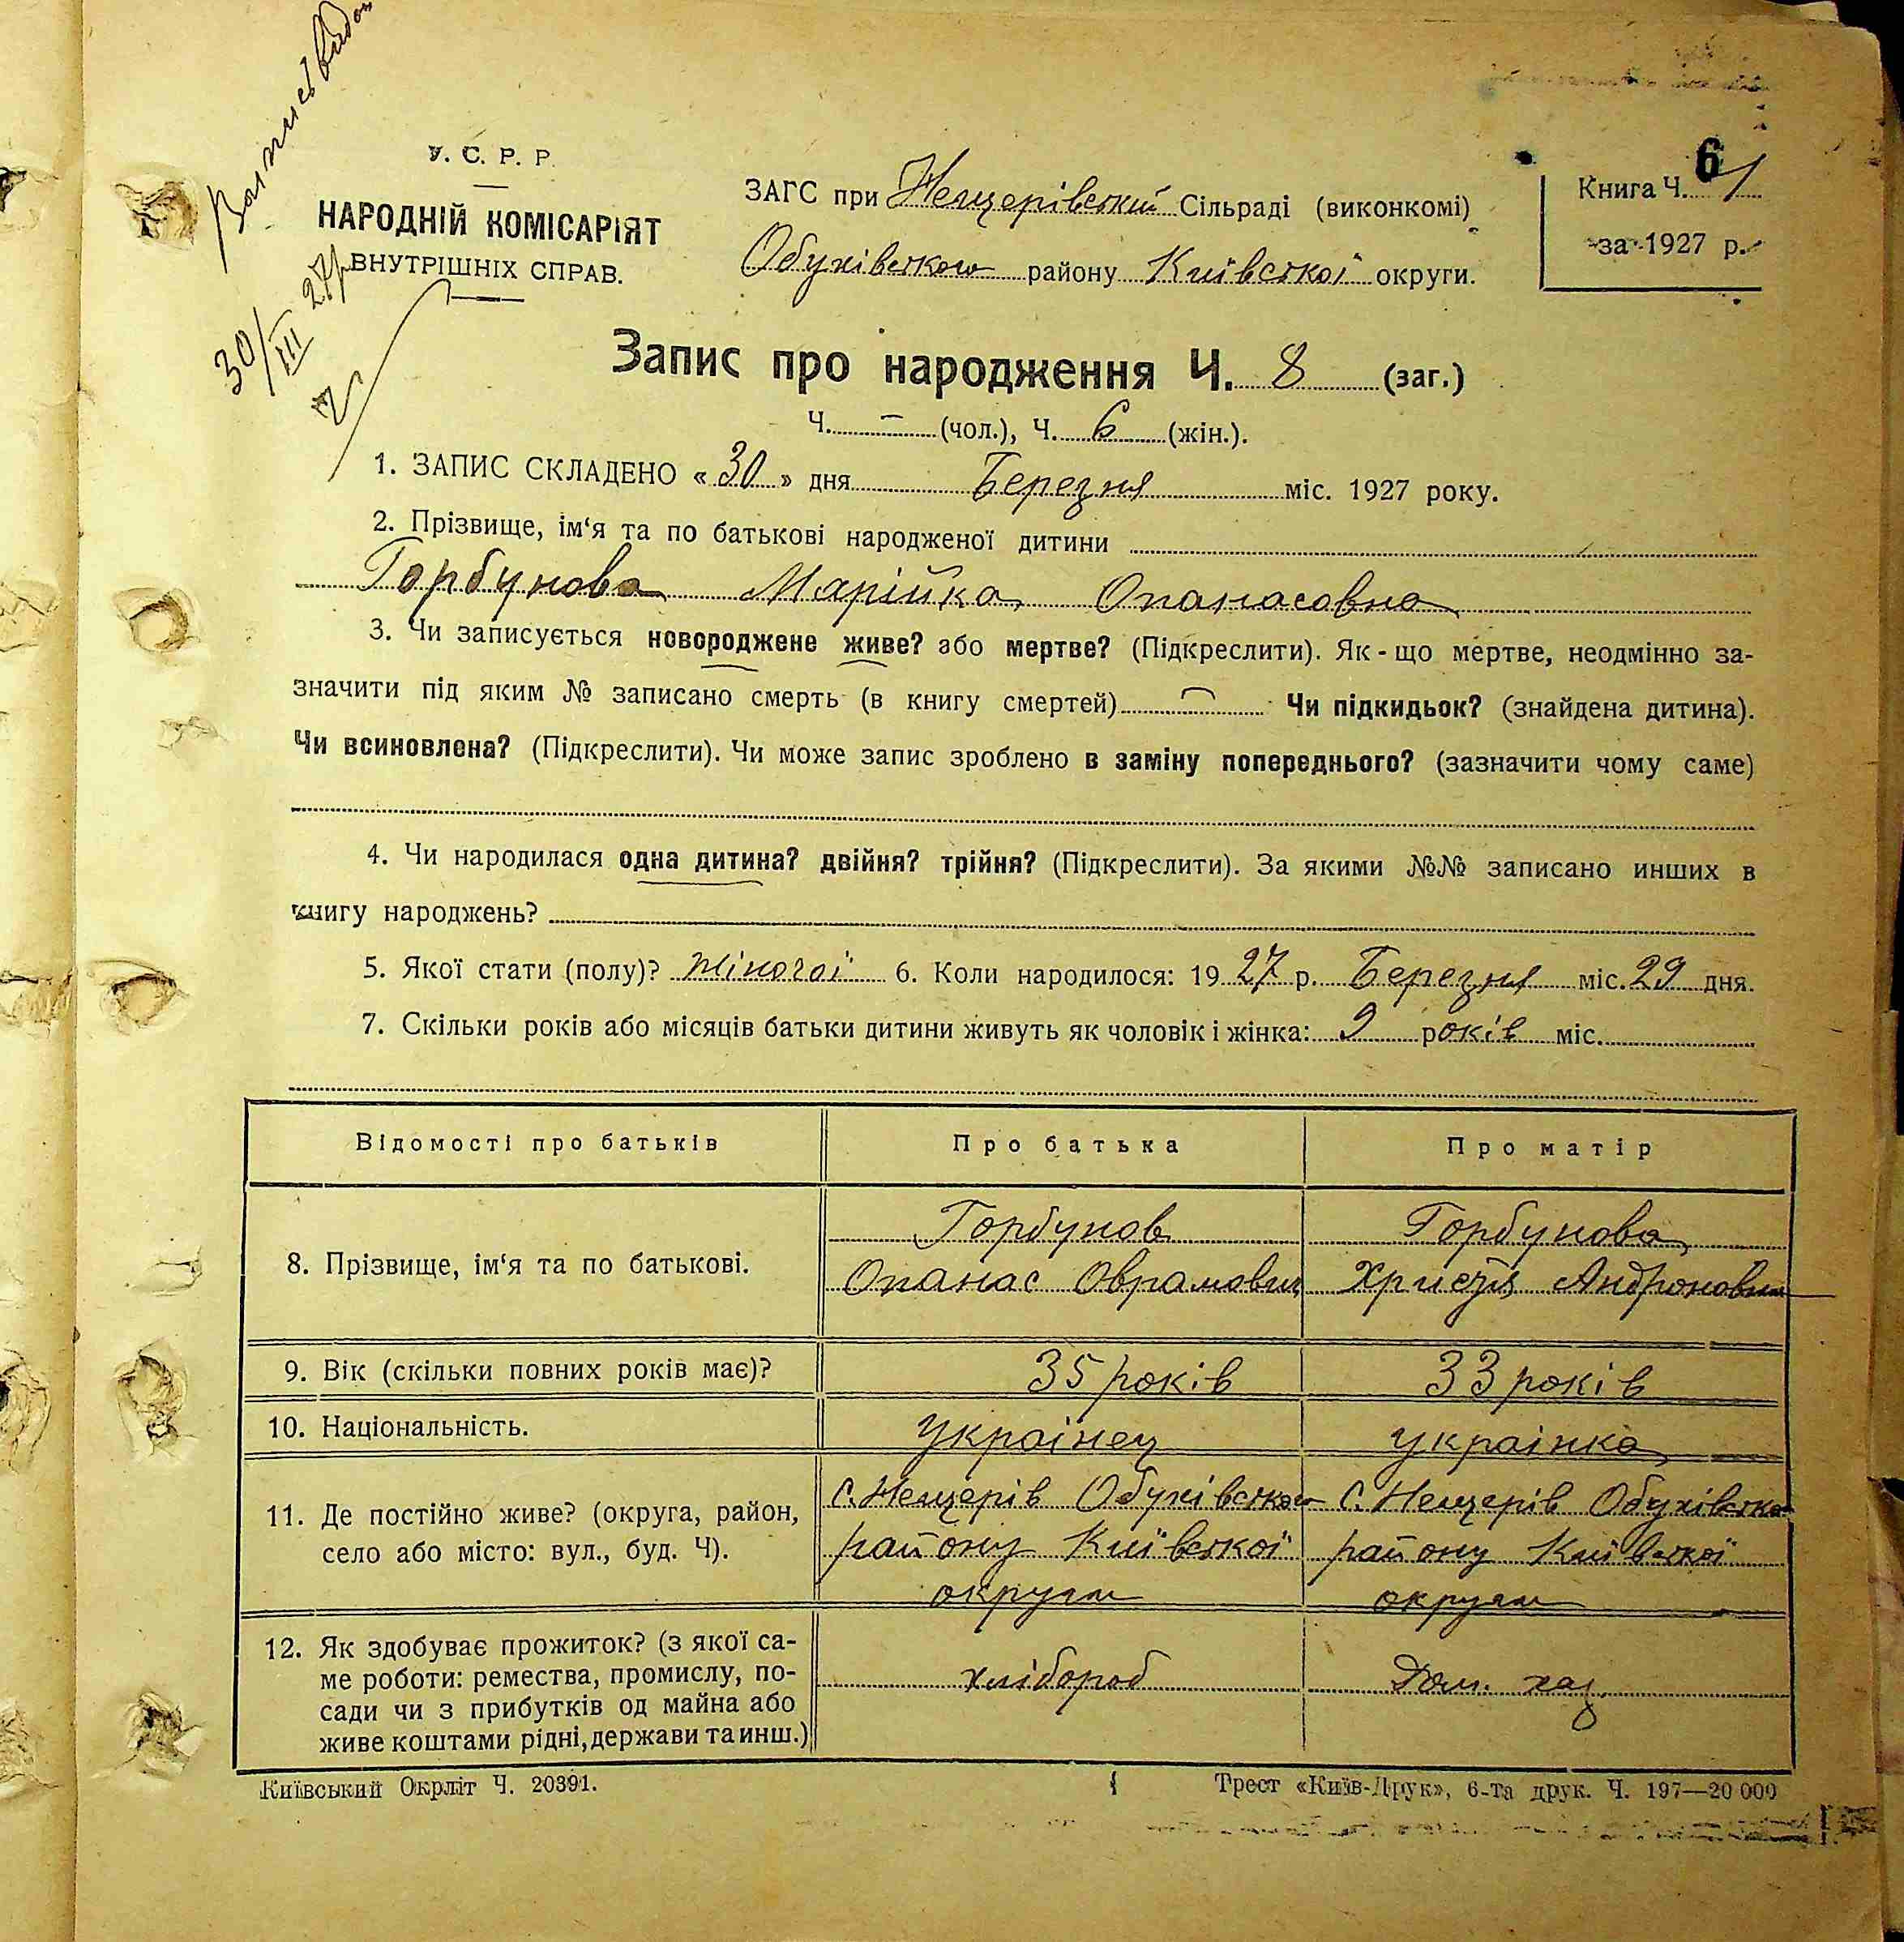 Випис видан
30/III 27р.
У. С. Р. Р.
НАРОДНІЙ КОМІСАРІЯТ
ВНУТРІШНІХ СПРАВ.
ЗАГС при Нещерівській Сільраді (виконкомі)
Обухівського району Київської округи.
6
Книга Ч. 1
за 1927 р.
Запис про народження Ч. 8 (заг.)
Ч. – (чол.), Ч. 6 (жін.).
1. ЗАПИС СКЛАДЕНО « 30 » дня Березня міс. 1927 року.
2. Прізвище, ім‘я та по батькові народженої дитини
Горбунова Марійка Опанасовна
3. Чи записується новороджене живе? або мертве? (Підкреслити). Як-що мертве, неодмінно за-
значити під яким № записано смерть (в книгу смертей) – Чи підкидьок? (знайдена дитина).
Чи всиновлена? (Підкреслити). Чи може запис зроблено в заміну попереднього? (зазначити чому саме)
4. Чи народилася одна дитина? двійня? трійня? (Підкреслити). За якими №№ записано инших в
книгу народжень?
5. Якої стати (полу)? жіночої 6. Коли народилося: 1927 р. Березня міс. 29 дня.
7. Скільки років або місяців батьки дитини живуть як чоловік і жінка: 9 років міс.
Відомості про батьків Про батька Про матір
8. Прізвище, ім‘я та по батькові.
Горбунов
Опанас Оврамович
Горбунова
Христя Андроновна
9. Вік (скільки повних років має)? 35 років 33 років
10. Національність. українец українка
11. Де постійно живе? (округа, район,
село або місто: вул., буд. Ч).
С. Нещерів Обухівсько
району Київської
округи
С. Нещерів Обухівсько
району Київської
округи
12. Як здобуває прожиток? (з якої са-
ме роботи: ремества, промислу, по-
сади чи з прибутків од майна або
живе коштами рідні, держави та инш.)
хлібороб
Дом. хаз.
Київський Окрліт Ч. 20391.
Трест «Київ-Друк», 6-та друк. Ч. 197—20 000